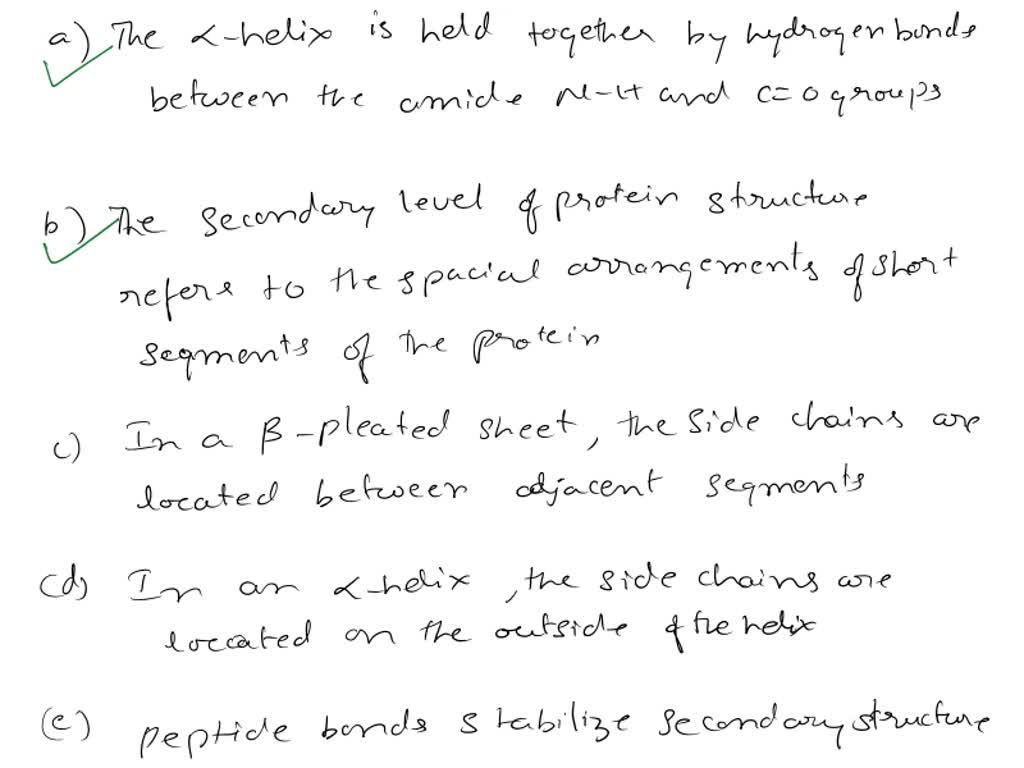 a) The α-helix is held together by hydrogen bonds
between the amide N-H and C=O groups
b) The secondary level of protein structure
refers to the spacial arrangements of short
segments of the protein
c) In a β-pleated sheet, the side chains are
located between adjacent segments
(d) In an α-helix, the side chains are
located on the outside of the helix
(e) peptide bonds stabilize secondary structure